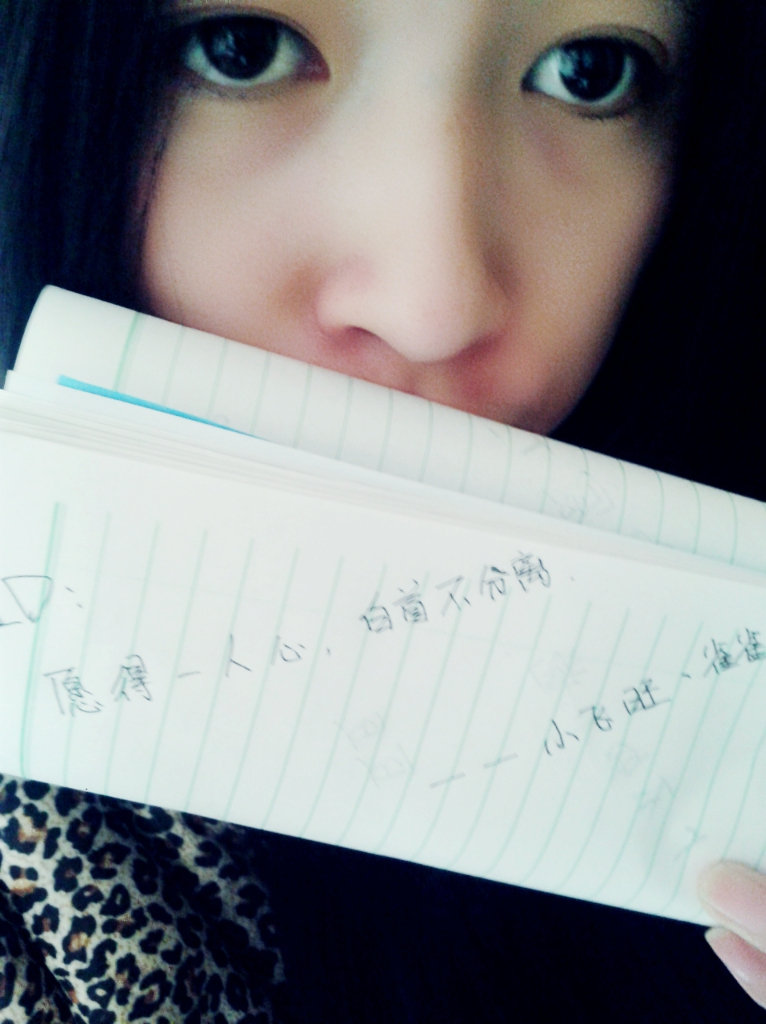 ID:
愿得一人心,白首不分离.
——小飞旺、雀雀